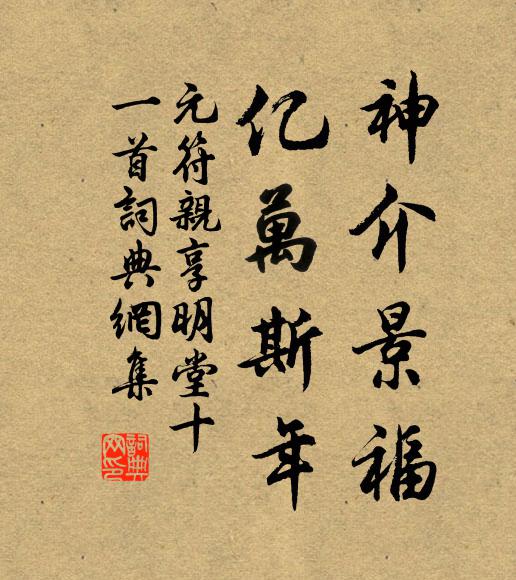 神介景福
亿萬斯年
元符親享明堂十
一首詞典網集
詞典
网印